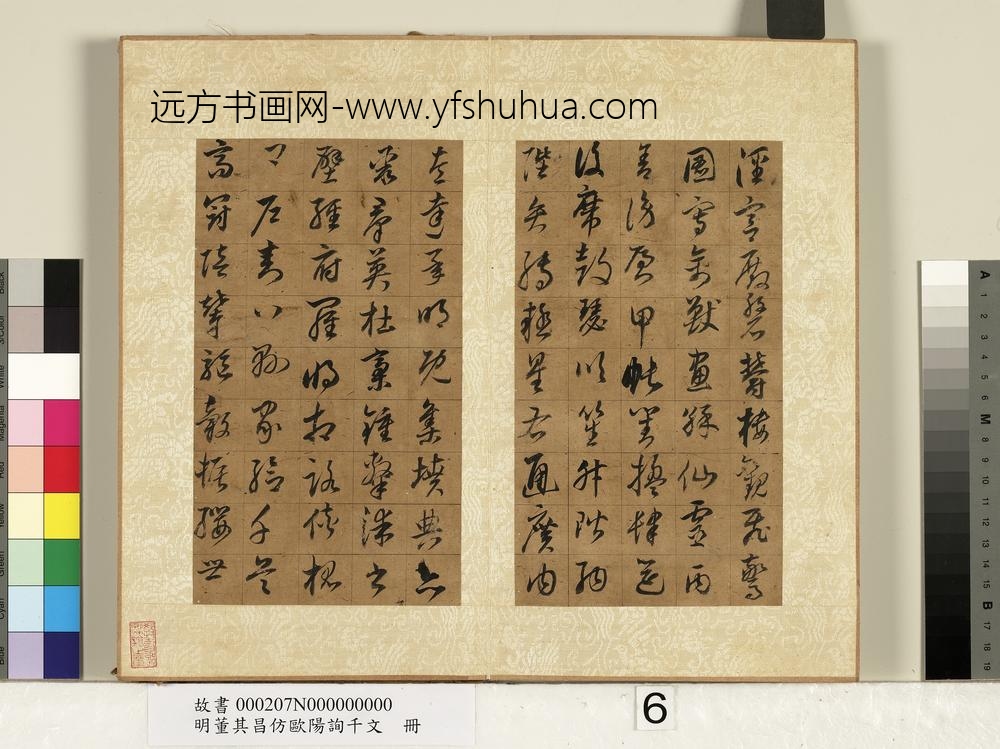 远方书画网-www.yfshuhua.com
涇宮殿磐鬱樓觀飛驚
圖寫禽獸畫綵仙靈丙
舍傍啓甲帳對楹肆筵
設席鼓瑟吹笙升階納
陛弁轉疑星右通廣內
左達承明既集墳典亦
聚羣英杜稾鍾隸漆書
壁經府羅將相路俠槐
卿戶封八縣家給千兵
高冠陪輦驅轂振纓世
故書 000207N000000000
明董其昌仿歐陽詢千文 冊
6